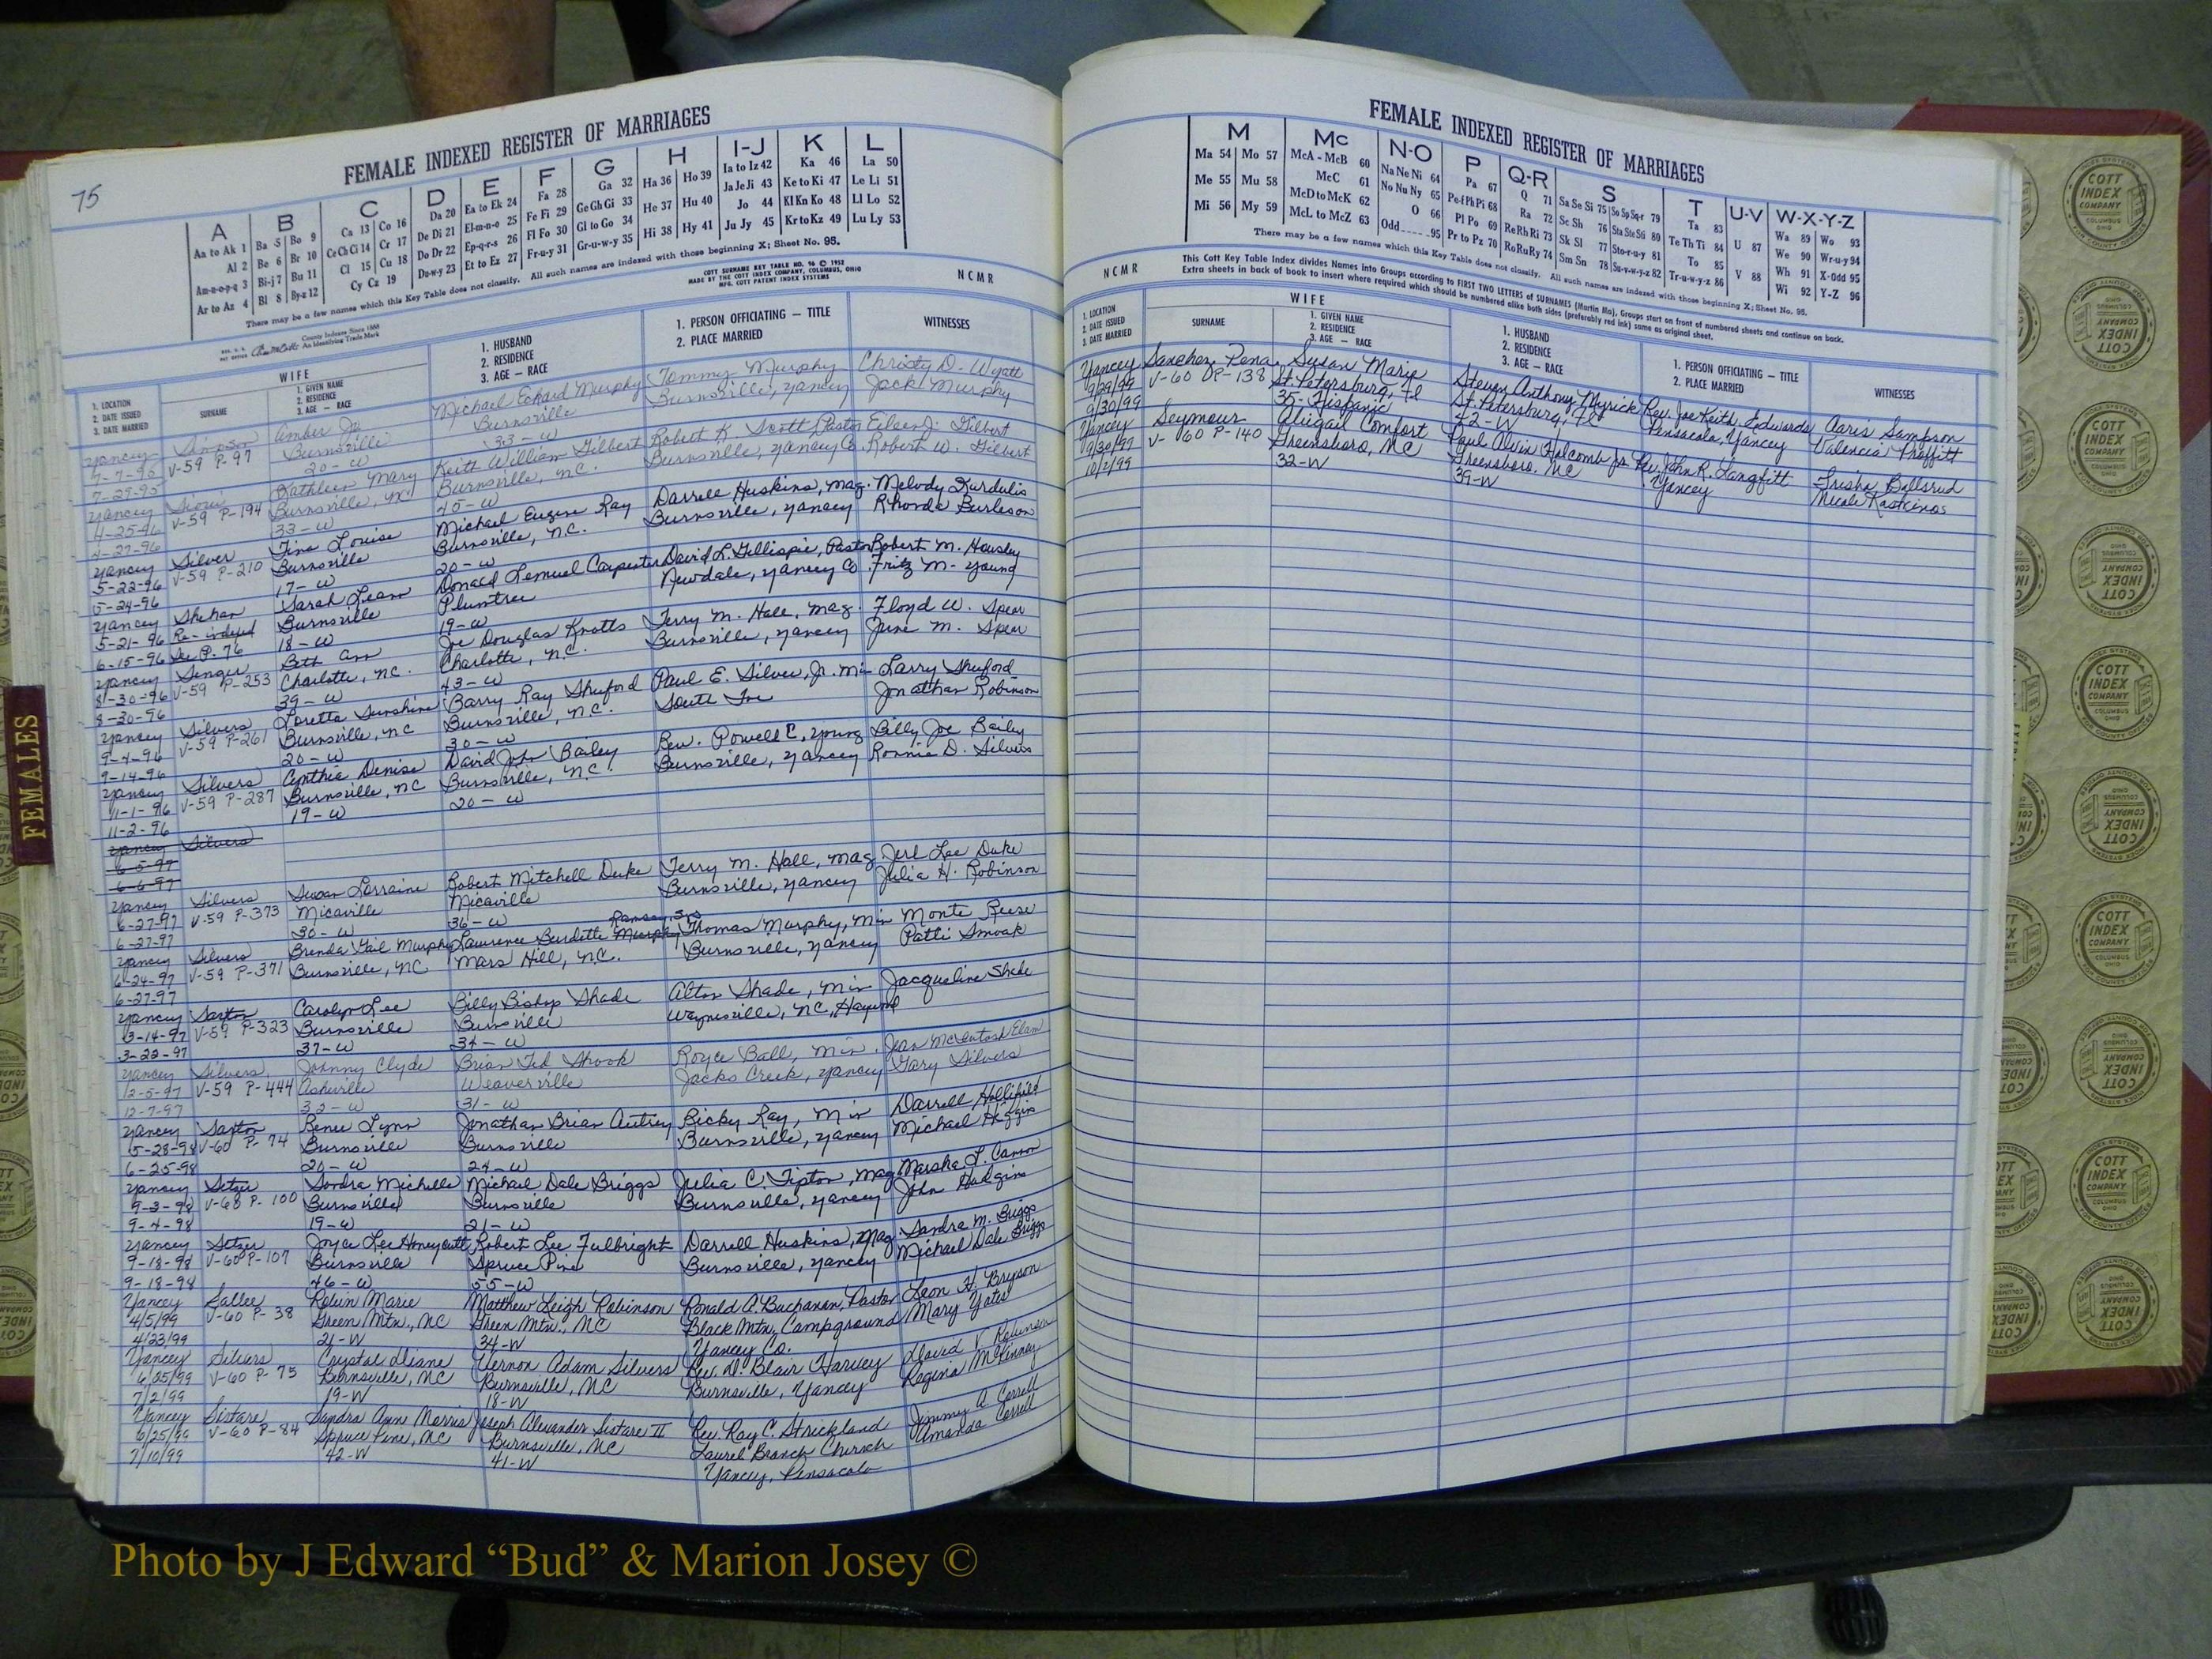 75
FEMALE INDEXED REGISTER OF MARRIAGES
A
Aa to Ak 1
Al 2
Am-n-o-p-q 3
Ar to Az 4
B
Ba 5 Bo 9
Be 6 Br 10
Bi-j 7 Bu 11
Bl 8 By-z 12
C
Ca 13 Co 16
Ce Ch Ci 14 Cr 17
Cl 15 Cu 18
Cy Cz 19
D
Da 20
De Di 21
Do Dr 22
Du-w-y 23
E
Ea to Ek 24
El-m-n-o 25
Ep-q-r-s 26
Et to Ez 27
F
Fa 28
Fe Fi 29
Fl Fo 30
Fr-u-y 31
G
Ga 32
Ge Gh Gi 33
Gl to Go 34
Gr-u-w-y 35
H
Ha 36 Ho 39
He 37 Hu 40
Hi 38 Hy 41
I-J
Ia to Iz 42
Ja Je Ji 43
Jo 44
Ju Jy 45
K
Ka 46
Ke to Ki 47
Kl Kn Ko 48
Kr to Kz 49
L
La 50
Le Li 51
Ll Lo 52
Lu Ly 53
There may be a few names which this Key Table does not classify. All such names are indexed with those beginning X; Sheet No. 95.
COTT SURNAME KEY TABLE NO. 96 © 1952
MADE BY THE COTT INDEX COMPANY, COLUMBUS, OHIO
MFG. COTT PATENT INDEX SYSTEMS
NCMR
County Indexes Since 1888
An Identifying Trade Mark
1. LOCATION
2. DATE ISSUED
3. DATE MARRIED
WIFE
SURNAME
1. GIVEN NAME
2. RESIDENCE
3. AGE — RACE
1. HUSBAND
2. RESIDENCE
3. AGE — RACE
1. PERSON OFFICIATING — TITLE
2. PLACE MARRIED
WITNESSES
Yancey Simpson Amber Jo Michael Eckard Murphy Tommy Murphy Christy D. Wyatt
7-7-95 V-59 P-97 Burnsville Burnsville Burnsville, Yancey Jack Murphy
7-29-95 20-W 33-W
Yancey Kathleen Mary Keith William Gilbert Robert K Scott Pastor Eileen J. Gilbert
4-25-96 V-59 P-194 Burnsville, NC Burnsville, N.C. Burnsville, Yancey Co. Robert W. Gilbert
4-27-96 33-W 45-W
Yancey Silver Tina Louise Michael Eugene Ray Darrell Huskins, Mag. Melody Kurdulis
5-22-96 V-59 P-210 Burnsville Burnsville, N.C. Burnsville, Yancey Rhonda Burleson
5-24-96 17-W 20-W
Yancey Shehan Sarah Leann Donald Lemuel Carpenter David L. Gillispie, Pastor Robert M. Housley
5-21-96 Re-indexed Burnsville Plumtree Newdale, Yancey Co. Fritz M. Young
6-15-96 See P-76 18-W 19-W
Yancey Singer Beth Ann Joe Douglas Knotts Terry M. Hall, Mag. Floyd W. Spear
8-30-96 V-59 P-253 Charlotte, N.C. Charlotte, N.C. Burnsville, Yancey June M. Spear
8-30-96 39-W 43-W
Yancey Silvers Loretta Sunshine Barry Ray Shuford Paul E. Silver, Jr. Min Larry Shuford
9-4-96 V-59 P-261 Burnsville, NC Burnsville, N.C. South Toe Jonathan Robinson
9-14-96 20-W 30-W
Yancey Silvers Cynthia Denise David John Bailey Rev. Powell C. Young Billy Joe Bailey
11-1-96 V-59 P-287 Burnsville, NC Burnsville, N.C. Burnsville, Yancey Ronnie D. Silvers
11-2-96 19-W 20-W
Yancey Silvers
6-5-97
6-6-97
Yancey Silvers Susan Lorraine Robert Mitchell Duke Terry M. Hall, Mag Jerl Lee Duke
6-27-97 V-59 P-373 Micaville Micaville Burnsville, Yancey Julia H. Robinson
6-27-97 30-W 36-W
Yancey Silvers Brenda Gail Murphy Lawrence Burdette Murphy Ramsey, Sr. Thomas Murphy, Min Monte Reese
6-24-97 V-59 P-371 Burnsville, NC Mars Hill, N.C. Burnsville, Yancey Patti Smoak
6-27-97
Yancey Saxton Carolyn Lee Billy Bishop Shade Alton Shade, Min Jacqueline Shade
3-14-97 V-59 P-323 Burnsville Burnsville Waynesville, NC, Haywood
3-29-97 37-W 34-W
Yancey Silvers Johnny Clyde Brian Ted Shook Royce Ball, Min. Jean McIntosh Elam
12-5-97 V-59 P-444 Asheville Weaverville Jacks Creek, Yancey Gary Silvers
12-7-97 32-W 31-W
Yancey Saxton Renee Lynn Jonathan Brian Autrey Ricky Ray, Min Darrell Hollifield
5-28-98 V-60 P-74 Burnsville Burnsville Burnsville, Yancey Michael Higgins
6-25-98 20-W 24-W
Yancey Setzer Sondra Michelle Michael Dale Briggs Julia C. Tipton, Mag Marsha L. Cannon
9-3-98 V-60 P-100 Burnsville Burnsville Burnsville, Yancey John Hudgins
9-4-98 19-W 21-W
Yancey Setzer Joyce Lee Honeycutt Robert Lee Fulbright Darrell Huskins, Mag. Sandra M. Briggs
9-18-98 V-60 P-107 Burnsville Spruce Pine Burnsville, Yancey Michael Dale Briggs
9-18-98 46-W 55-W
Yancey Sallee Robin Marie Matthew Leigh Robinson Ronald A. Buchanan, Pastor Leon H. Bryson
4/5/99 V-60 P-38 Green Mtn., NC Green Mtn., NC Black Mtn. Campground Mary Yates
4/23/99 21-W 34-W Yancey Co.
Yancey Silvers Crystal Diane Vernon Adam Silvers Rev. D. Blair Harvey David V. Robinson
6/25/99 V-60 P-75 Burnsville, NC Burnsville, NC Burnsville, Yancey Regina McKinney
7/2/99 19-W 18-W
Yancey Sistare Sandra Ann Morris Joseph Alexander Sistare II Rev. Ray C. Strickland Jimmy A Correll
6/25/99 V-60 P-84 Spruce Pine, NC Burnsville, NC Laurel Branch Church Amanda Correll
7/10/99 42-W 41-W Yancey, Pensacola
FEMALE INDEXED REGISTER OF MARRIAGES
M
Ma 54 Mo 57
Me 55 Mu 58
Mi 56 My 59
Mc
McA - McB 60
McC 61
McD to McK 62
McL to McZ 63
N-O
Na Ne Ni 64
No Nu Ny 65
O 66
Odd 95
P
Pa 67
Pe-f Ph Pi 68
Pl Po 69
Pr to Pz 70
Q-R
Q 71
Ra 72
Re Rh Ri 73
Ro Ru Ry 74
S
Sa Se Si 75 So Sp Sq-r 79
Sc Sh 76 Sta Ste Sti 80
Sk Sl 77 Sto-r-u-y 81
Sm Sn 78 Su-v-w-y-z 82
T
Ta 83
Te Th Ti 84
To 85
Tr-u-w-y-z 86
U-V
U 87
V 88
W-X-Y-Z
Wa 89 Wo 93
We 90 Wr-u-y 94
Wh 91 X-Odd 95
Wi 92 Y-Z 96
There may be a few names which this Key Table does not classify. All such names are indexed with those beginning X; Sheet No. 95.
NCMR
This Cott Key Table Index divides Names into Groups according to FIRST TWO LETTERS of SURNAMES (Martin Ma), Groups start on front of numbered sheets and continue on back.
Extra sheets in back of book to insert where required which should be numbered alike both sides (preferably red ink) same as original sheet.
1. LOCATION
2. DATE ISSUED
3. DATE MARRIED
WIFE
SURNAME
1. GIVEN NAME
2. RESIDENCE
3. AGE — RACE
1. HUSBAND
2. RESIDENCE
3. AGE — RACE
1. PERSON OFFICIATING — TITLE
2. PLACE MARRIED
WITNESSES
Yancey Sanchez Pena Susan Marie Steven Anthony Myrick Rev. Joe Keith Edwards Aaris Sampson
9/29/99 V-60 P-138 St. Petersburg, Fl St. Petersburg, Fl Pensacola, Yancey Valencia Proffitt
9/30/99 35-Hispanic 42-W
Yancey Seymour Abigail Comfort Paul Alvin Holcomb Jr. Rev. John R. Langfitt Trisha Ballsrud
9/30/99 V-60 P-140 Greensboro, NC Greensboro, NC Yancey Nicole
10/2/99 32-W 39-W
FEMALES
COTT
INDEX
COMPANY
COLUMBUS
OHIO
Photo by J Edward “Bud” & Marion Josey ©